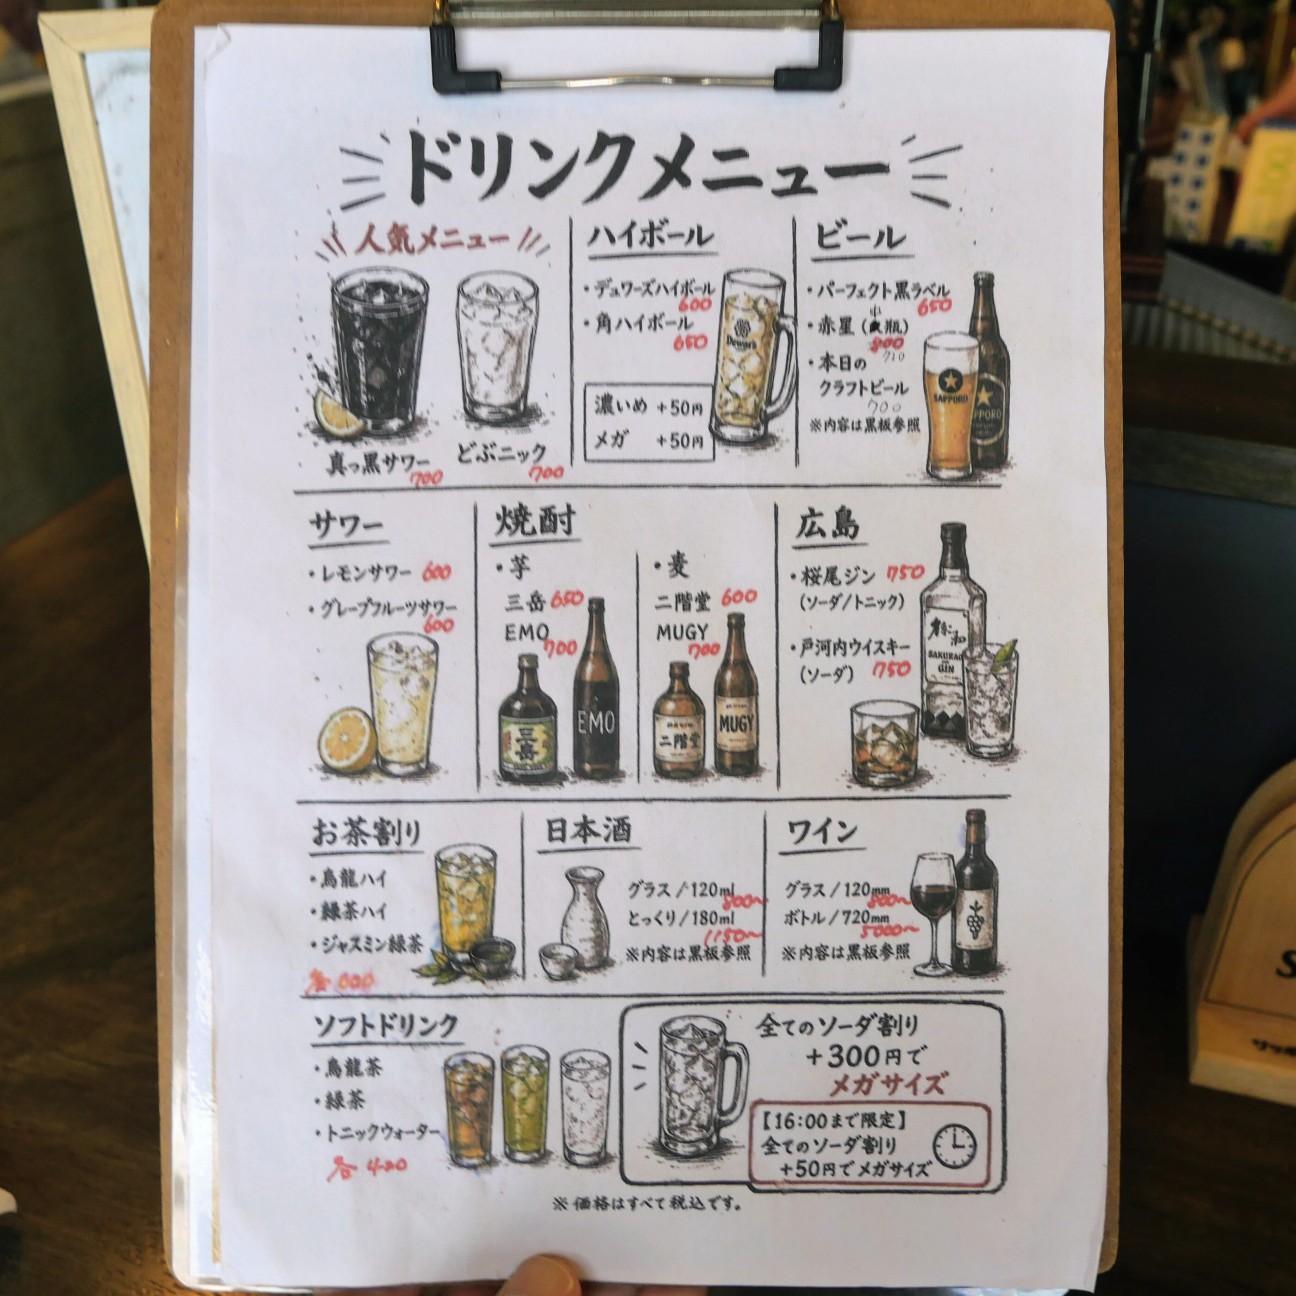 ドリンクメニュー
人気メニュー
真っ黒サワー
700
どぶニック
700
ハイボール
・デュワーズハイボール
600
・角ハイボール
650
濃いめ +50円
メガ +50円
Dewar's
ビール
・パーフェクト黒ラベル
650
・赤星(中瓶)
710
・本日の
クラフトビール
700
※内容は黒板参照
SAPPORO
サワー
・レモンサワー 600
・グレープフルーツサワー
600
焼酎
・芋
三岳 650
EMO
700
三岳
EMO
・麦
二階堂 600
MUGY
700
二階堂
MUGY
広島
・桜尾ジン 750
(ソーダ/トニック)
・戸河内ウイスキー
(ソーダ) 750
SAKURAO
GIN
お茶割り
・烏龍ハイ
・緑茶ハイ
・ジャスミン緑茶
各 600
日本酒
グラス/120ml
800〜
とっくり/180ml
1150〜
※内容は黒板参照
ワイン
グラス/120mm
800〜
ボトル/720mm
5000〜
※内容は黒板参照
ソフトドリンク
・烏龍茶
・緑茶
・トニックウォーター
各 420
全てのソーダ割り
+300円で
メガサイズ
【16:00まで限定】
全てのソーダ割り
+50円でメガサイズ
※価格はすべて税込です。